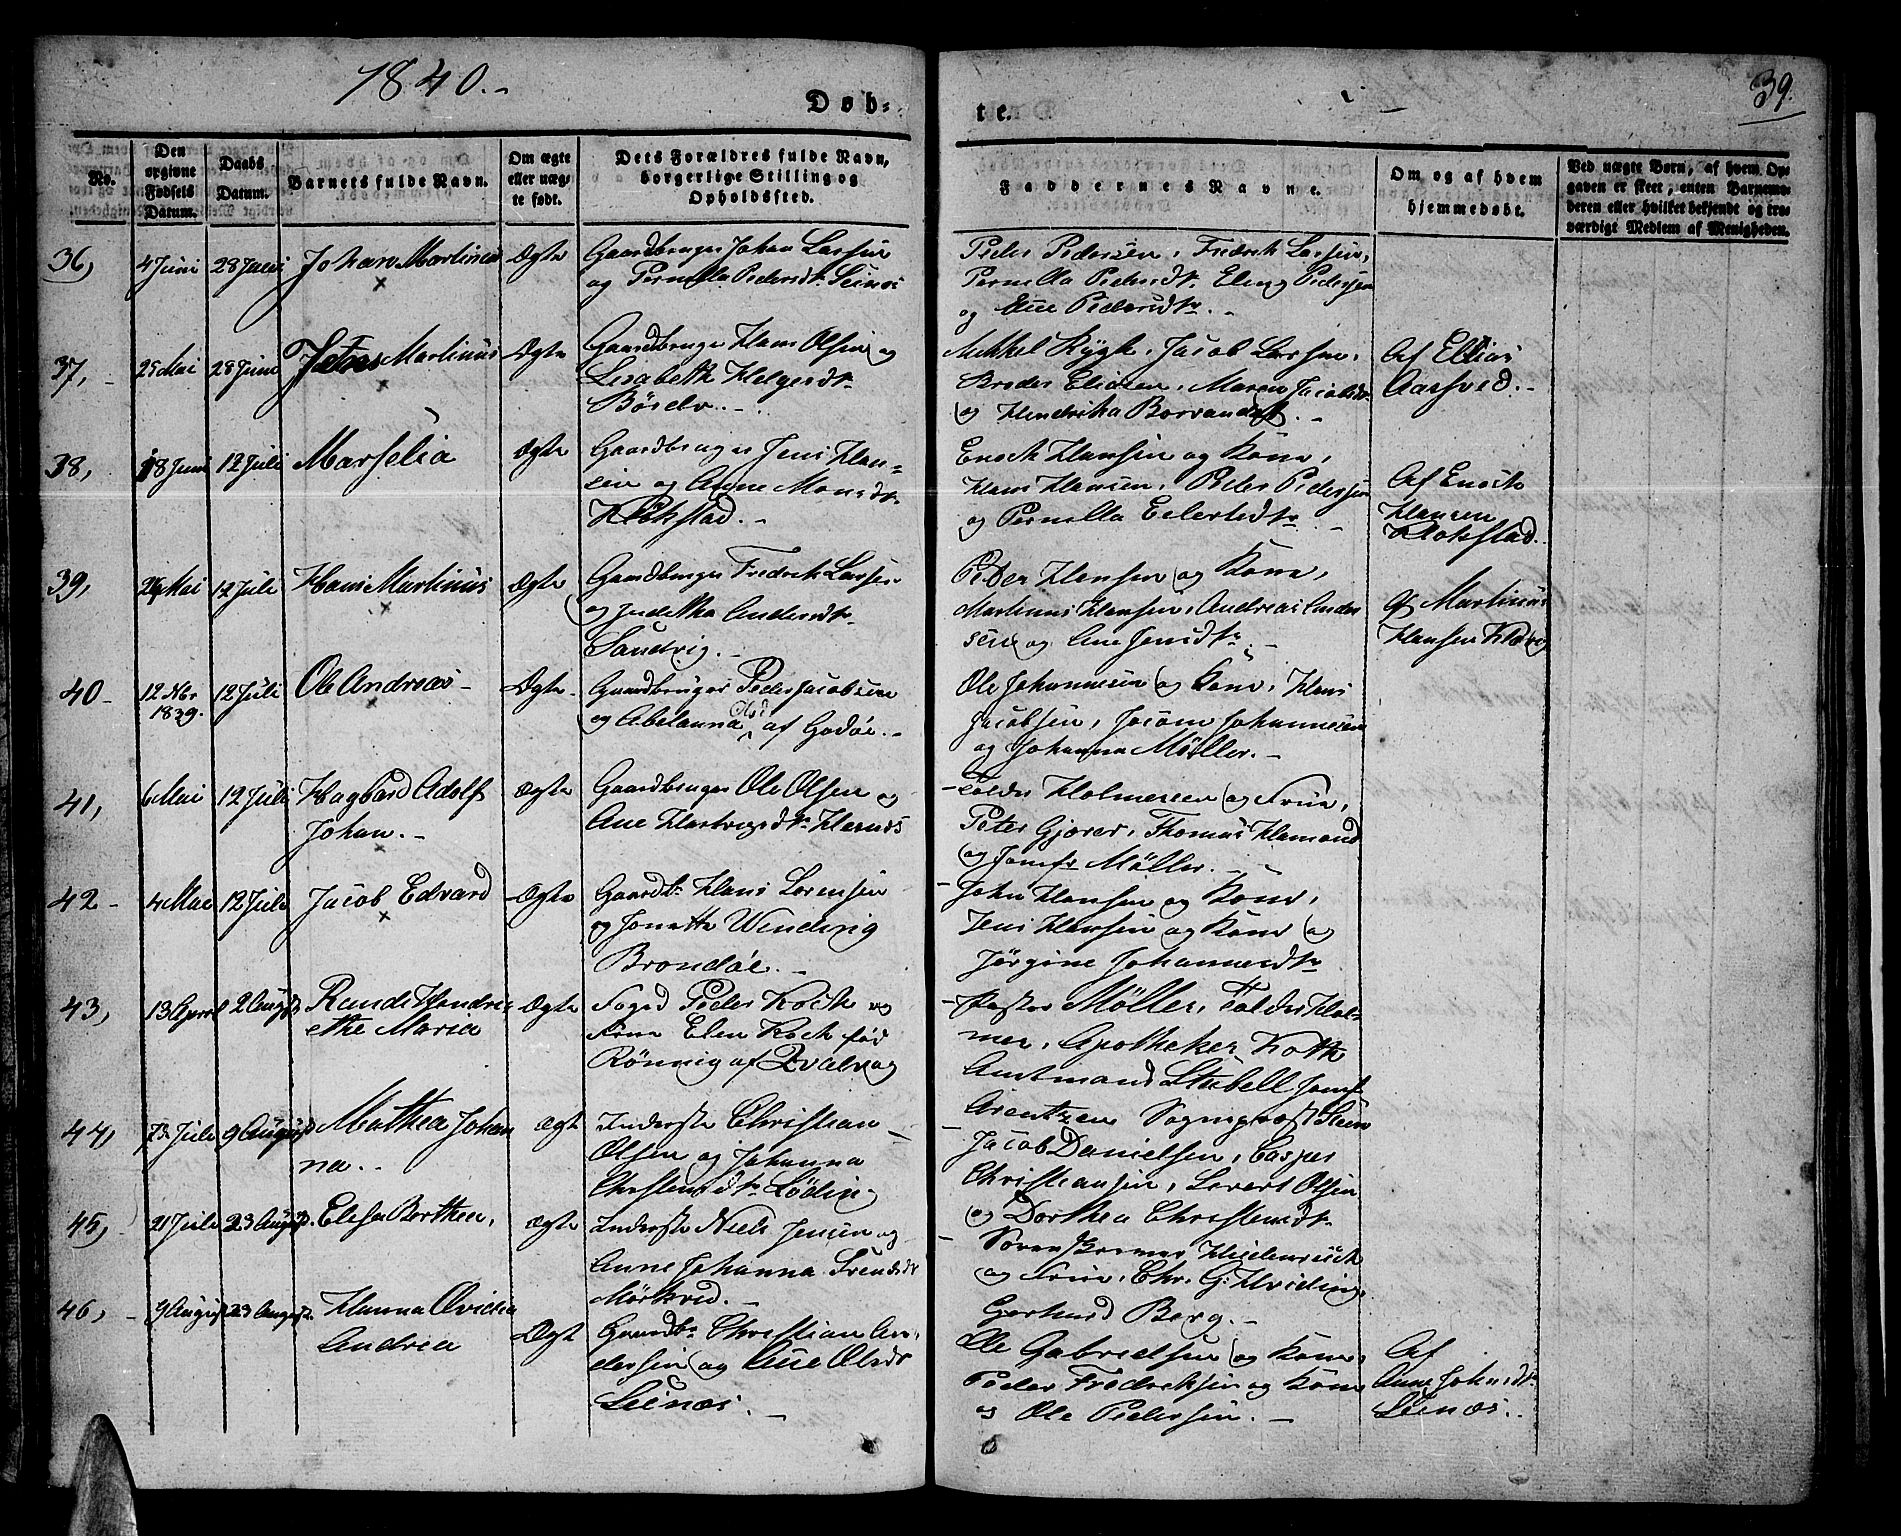 1840.-
39.
Døb-
te.
No.
Den
opgivne
Fødsels
Datum.
Daabs
Datum.
Barnets fulde Navn.
Om ægte
eller uæg-
te født.
Dets Forældres fulde Navn,
borgerlige Stilling og
Opholdssted.
Faddernes Navne.
Om og af hvem
hjemmedøbt.
Ved uægte Børn, af hvem Op-
gaven er skeet, enten Barnemo-
deren eller hvilket bekjendt og tro-
værdigt Medlem af Menigheden.
36, 4 Juni 28 Juni Johan Martinus Ægte Gaardbruger Johan Larsen
og Pernella Pedersdtr Leinæs
Peder Pedersen, Fredrik Larsen,
Pernella Pedersdtr Eling Pedersen
og Ane Pedersdtr. -
37, - 25 Mai 28 Juni Martinus Ægte Gaardbruger Hans Olsen og
Lisabeth Helgesdtr
Børelv. -
Mikkel Rygh, Jacob Larsen,
Broder Eliasen, Maren Jacobsdtr
og Hendrika
Af Ellias
Aasved. -
38, 18 Juni 12 Juli Marselia Ægte Gaardbruger Jens Han-
sen og Anne Monsdtr
Klokstad. -
Enoch Hansen og Kone,
Hans Hansen, Peder Pedersen
og Pernella Eilertsdtr -
Af Enoch
Hansen
Klokstad.
39, 24 Mai 12 Juli Hans Martinus Ægte Gaardbruger Fredrik Larsen
og Judithe Andersdtr
Sandvig. -
Peder Hansen og Kone,
Martinus Hansen, Andreas Ander
sen og Ane Jensdtr. -
Af Martinus
Hansen
40 - 12 Nbr
1839. 12 Juli Ole Andreas - Ægte - Gaardbruger Peder Jacobsen
og Abelanna Olsd af Godøe. -
Ole Johannesen og Kone, Hans
Jacobsen, Jacom Johannesen
og Johanna Møller. -
41, 6 Mai 12 Juli Hagbard Adolf
Johan. - Ægte Gaardbruger Ole Olsen og
Ane Hartvigsdtr Hernes
- Tolder Holmesen og Frue,
Peter Gjærer, Thomas Hamond
og Jomfr Møller. -
42 - 4 Mai 12 Juli Jacob Edvard - Ægte Gaardbr Hans Lorensen
og Jonetta Wendevig
Brondøe. -
- John Hansen og Kone,
Jens Hansen og Kone og
Jørgine Johannesdtr
43, 13 April 2 August Randi Hendri-
ethe Maria Ægte Foged Peder Koch og
Frue Elen Koch fød
Rønning af Qvalvog
- Pastor Møller, Tolder Hol-
mer, Apotheker Koth
Amtmand Stabell Jomf
Arentzen Sogneprest Steen
44, 13 Juli 9 August Mathea Johan
na. - Ægte Inderste Christian
Olsen og Johanna
Christensdtr Løding
- Jacob Danielsen, Casper
Christiansen, Severt Olsen
og Dorthea Christensdtr
45, 21 Juli 23 August. Elesa Berthea, Ægte Inderste Niels Jensen og
Anne Johanna Svendsdtr
Mørkved. -
- Søren
og Frue, Chr. G. Hveding,
Gerhard Berg. -
46, - 9 August 23 August. Hanna Ovidia
Andrea Ægte Gaardbr Christian An-
dersen og Ane Olsdtr
Leinæs. -
Ole Gabrielsen og Kone,
Peder Fredriksen og Kone
og Ole Pedersen. -
Af
Anne Johnsdtr
Leinæs.